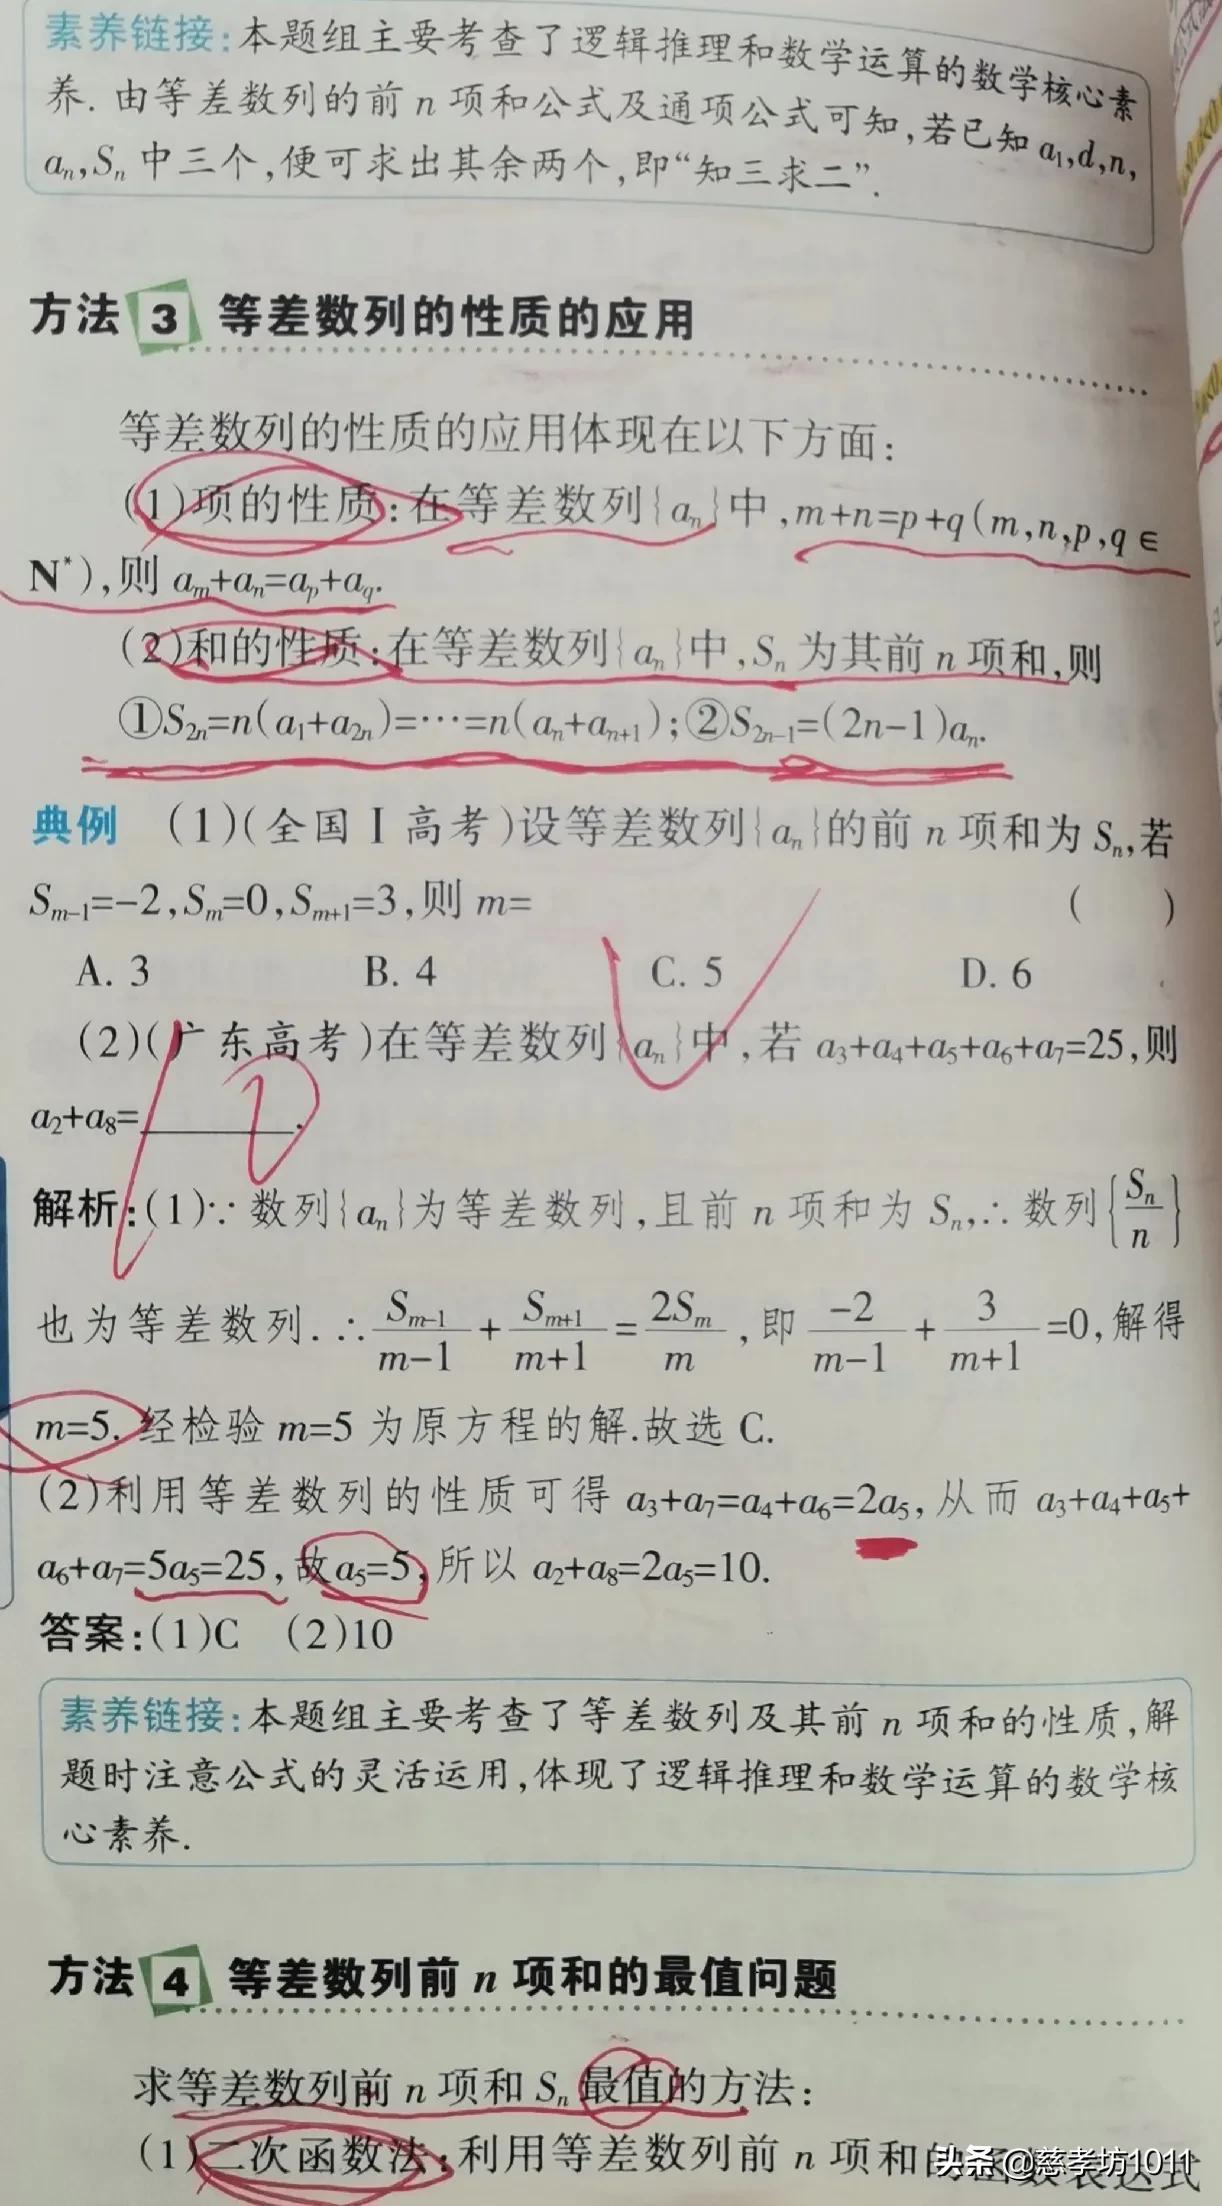 素养链接:本题组主要考查了逻辑推理和数学运算的数学核心素
养.由等差数列的前n项和公式及通项公式可知,若已知a₁,d,n,
aₙ,Sₙ中三个,便可求出其余两个,即“知三求二”.
方法 3 等差数列的性质的应用
等差数列的性质的应用体现在以下方面:
(1)项的性质:在等差数列{aₙ}中,m+n=p+q(m,n,p,q∈
N*),则aₘ+aₙ=aₚ+a_q.
(2)和的性质:在等差数列{aₙ}中,Sₙ为其前n项和,则
①S₂ₙ=n(a₁+a₂ₙ)=…=n(aₙ+aₙ₊₁);②S₂ₙ₋₁=(2n-1)aₙ.
典例 (1)(全国Ⅰ高考)设等差数列{aₙ}的前n项和为Sₙ,若
Sₘ₋₁=-2,Sₘ=0,Sₘ₊₁=3,则m= ( )
A. 3 B. 4 C. 5 D. 6
(2)(广东高考)在等差数列{aₙ}中,若a₃+a₄+a₅+a₆+a₇=25,则
a₂+a₈=______.
解析:(1)∵数列{aₙ}为等差数列,且前n项和为Sₙ,∴数列{Sₙ/n}
也为等差数列.∴Sₘ₋₁/(m-1)+Sₘ₊₁/(m+1)=2Sₘ/m,即-2/(m-1)+3/(m+1)=0,解得
m=5.经检验m=5为原方程的解.故选C.
(2)利用等差数列的性质可得a₃+a₇=a₄+a₆=2a₅,从而a₃+a₄+a₅+
a₆+a₇=5a₅=25,故a₅=5,所以a₂+a₈=2a₅=10.
答案:(1)C (2)10
素养链接:本题组主要考查了等差数列及其前n项和的性质,解
题时注意公式的灵活运用,体现了逻辑推理和数学运算的数学核
心素养.
方法 4 等差数列前n项和的最值问题
求等差数列前n项和Sₙ最值的方法:
(1)二次函数法:利用等差数列前n项和的函数表达式
头条 @慈孝坊1011